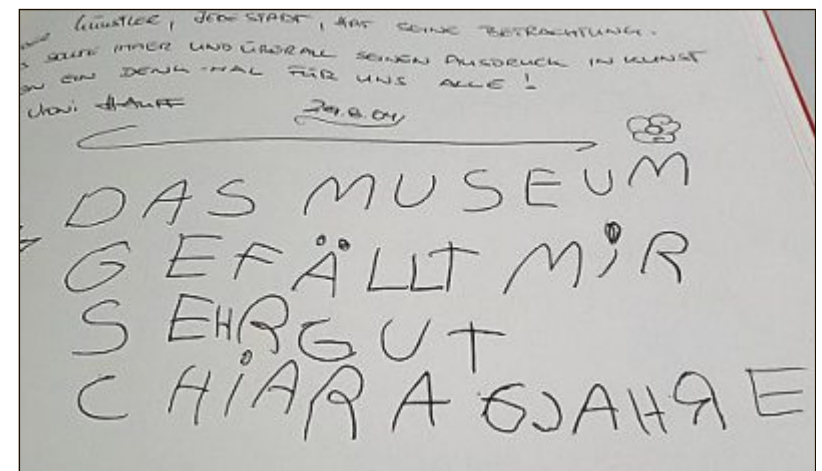 Künstler, JEDE STADT, HAT SEINE BETRACHTUNG.
SOLLTE IMMER UND ÜBERALL SEINEN AUSDRUCK IN KUNST
EIN DENK-MAL FÜR UNS ALLE!
DAS MUSEUM
GEFÄLLT MIR
SEHRGUT
CHIARA 6JAHRE